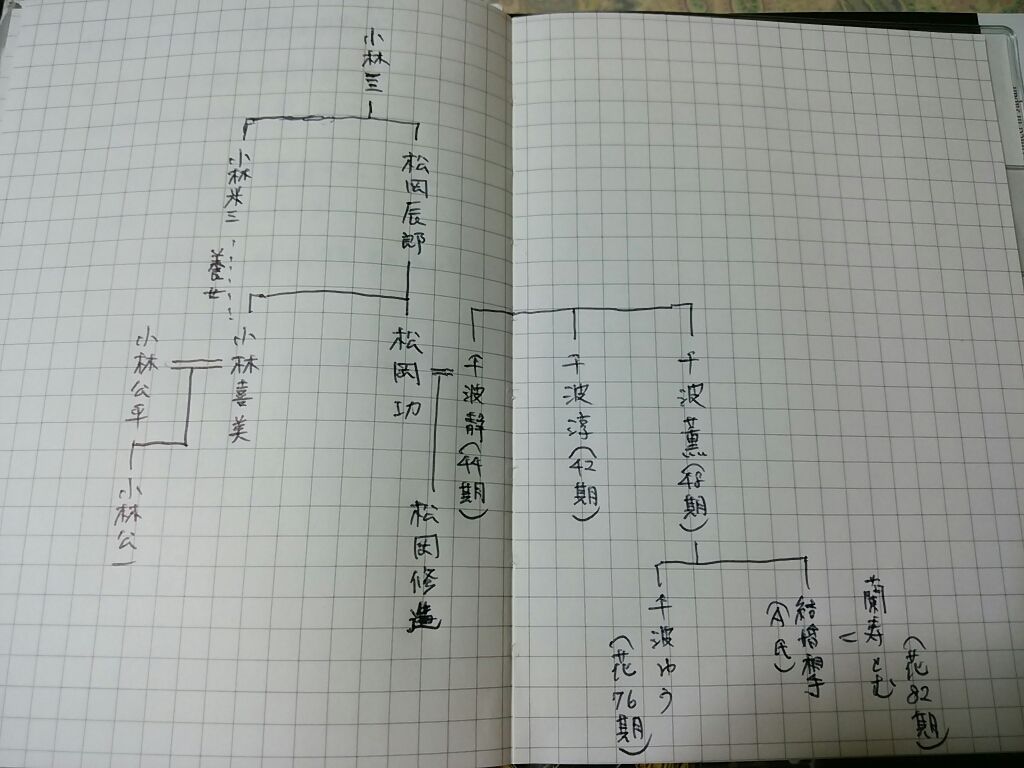 小林一三
小林米三
松岡辰郎
養女
小林公平
小林喜美
松岡功
千波静(44期)
千波淳(42期)
千波薫(48期)
小林公一
松岡修造
千波ゆう
(花76期)
結婚相手
(A氏)
蘭寿とむ
(花82期)